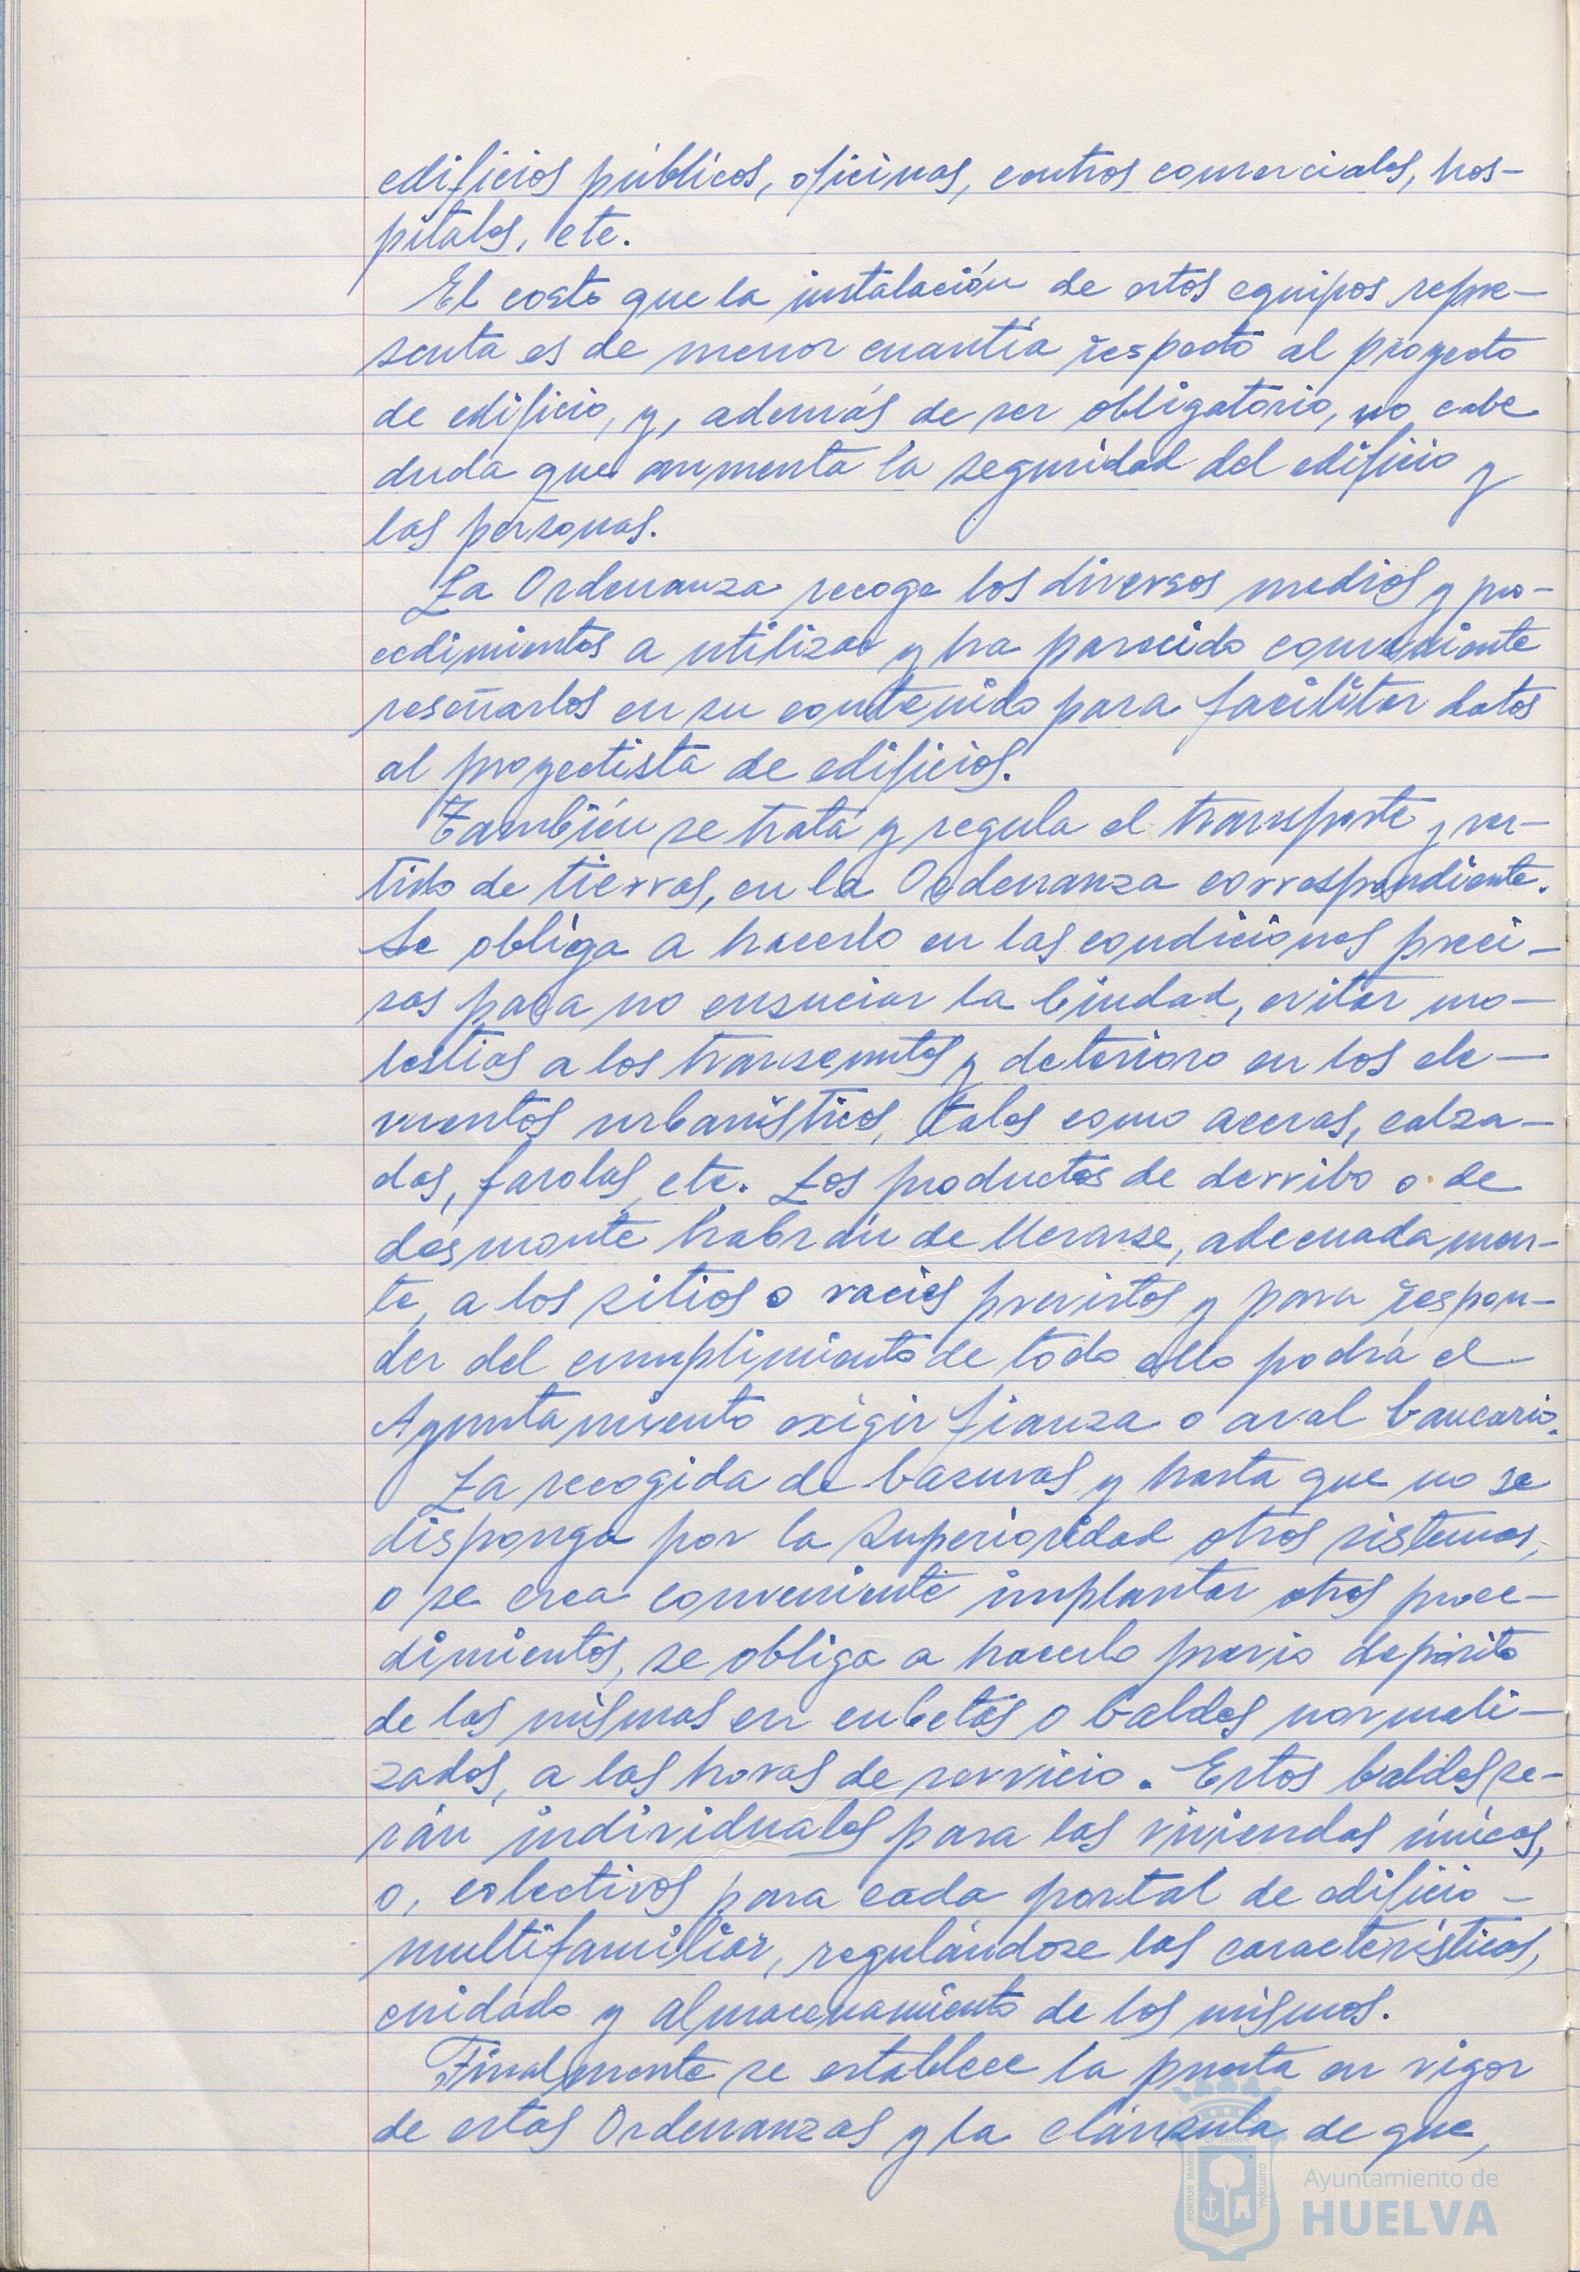 edificios públicos, oficinas, centros comerciales, hos-
pitales, etc.
El costo que la instalación de estos equipos repre-
senta es de menor cuantía respecto al proyecto
de edificio, y, además de ser obligatorio, no cabe
duda que aumenta la seguridad del edificio y
las personas.
La Ordenanza recoge los diversos medios y pro-
cedimientos a utilizar y ha parecido conveniente
reseñarlos en su contenido para facilitar datos
al proyectista de edificios.
También se trata y regula el transporte y ver-
tido de tierras, en la Ordenanza correspondiente.
Se obliga a hacerlo en las condiciones preci-
sas para no ensuciar la Ciudad, evitar mo-
lestias a los transeuntes y deterioro en los ele-
mentos urbanísticos, tales como aceras, calza-
das, farolas, etc. Los productos de derribo o de
desmonte habrán de llevarse, adecuadamen-
te, a los sitios o vacies previstos y para respon-
der del cumplimiento de todo ello podrá el
Ayuntamiento exigir fianza o aval bancario.
La recogida de basuras y hasta que no se
disponga por la Superioridad otros sistemas,
o se crea conveniente implantar otros proce-
dimientos, se obliga a hacerlo previo depósito
de las mismas en cubetas o baldes normali-
zados, a las horas de servicio. Estos baldes se-
rán individuales para las viviendas únicas,
o, colectivos para cada portal de edificio
multifamiliar, regulándose las características,
cuidado y almacenamiento de los mismos.
Finalmente se establece la puesta en vigor
de estas Ordenanzas y la cláusula de que,
PORTUS MARIS ET TERRAE CUSTODIA
Ayuntamiento de
HUELVA